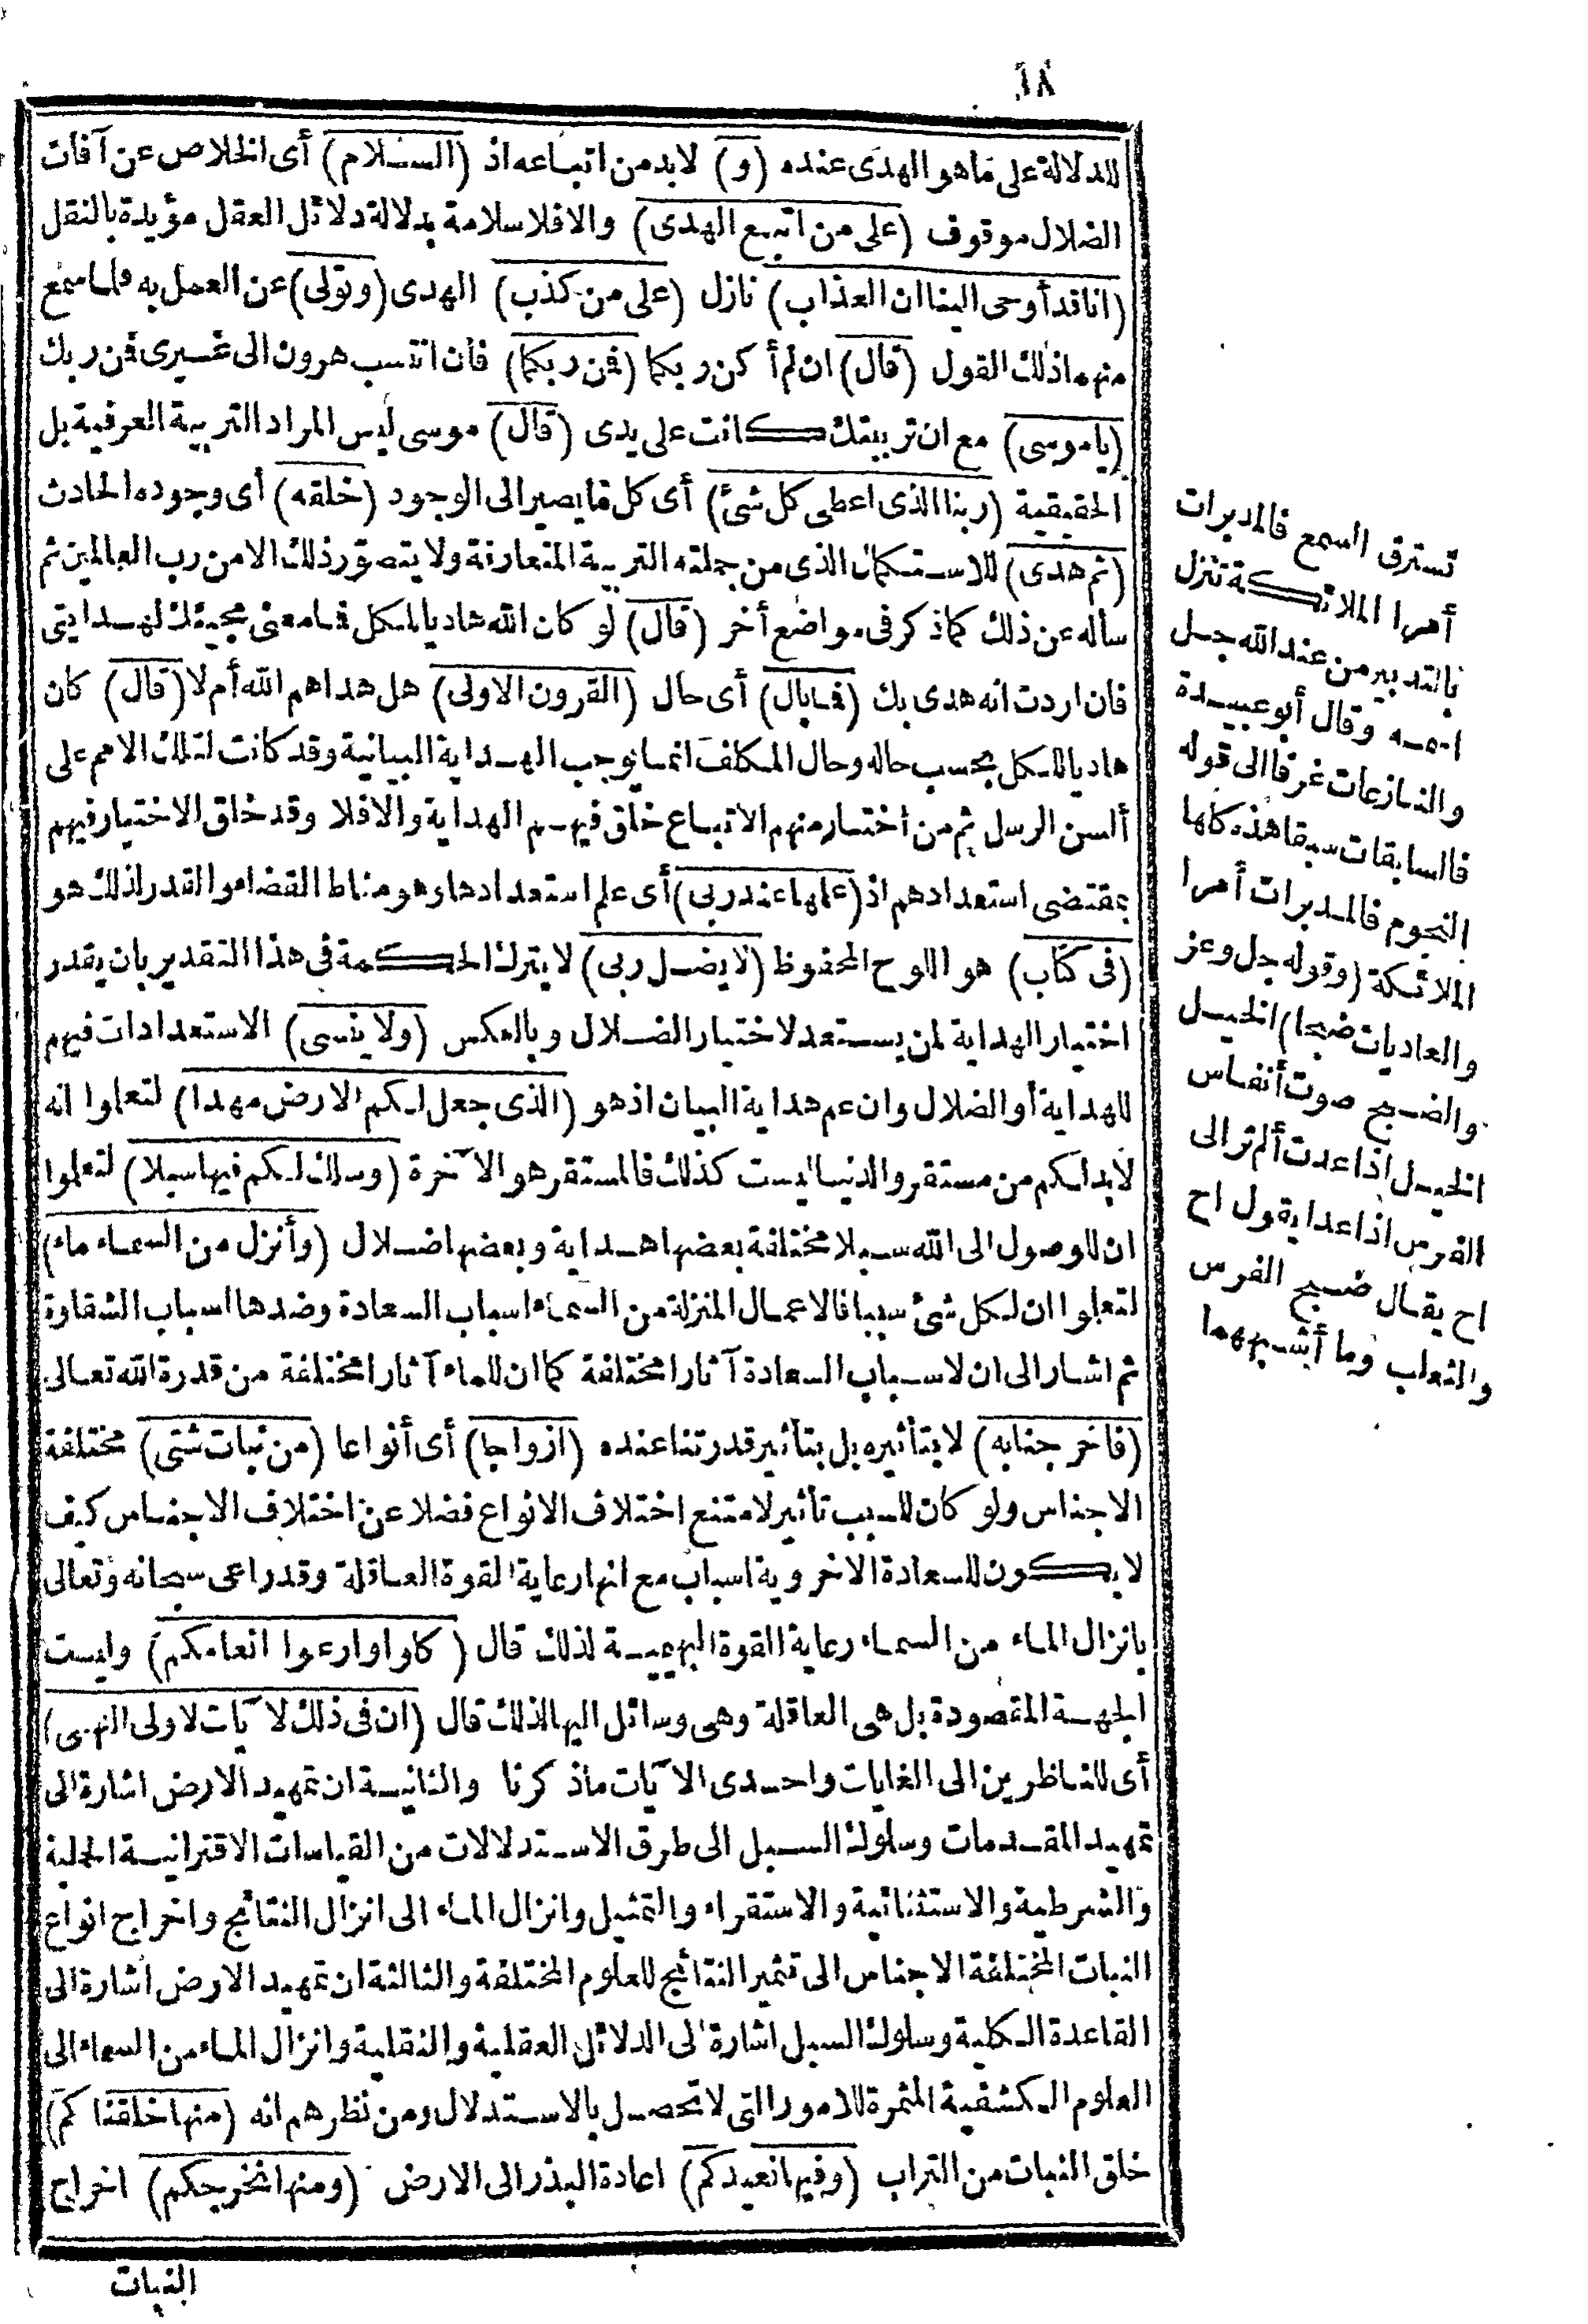 ١٨
للدلالة على ما هو الهدى عنده (و) لابد من اتباعه اذ (السلام) أى الخلاص عن آفات
الضلال موقوف (على من اتبع الهدى) والا فلا سلامة بدلالة دلائل العقل مؤيدة بالنقل
(انا قد أوحى الينا ان العذاب) نازل (على من كذب) الهدى (وتولى) عن العمل به فلما سمع
منهما ذلك القول (قال) ان لم أكن ربكما (فمن ربكما) فان انتسب هرون الى غيرى فمن ربك
(يا موسى) مع ان تربيتك كانت على يدى (قال) موسى ليس المراد التربية العرفية بل
الحقيقية (ربنا الذى اعطى كل شئ) أى كل ما يصير الى الوجود (خلقه) أى وجوده الحادث
(ثم هدى) للاستكمال الذى من جملته التربية المتعارفة ولا يتصور ذلك الا من رب العالمين ثم
سأله عن ذلك كما ذكر فى مواضع أخر (قال) لو كان الله هاديا للكل فما معنى مجيئك لهدايتى
فان اردت انه هدى بك (فما بال) أى حال (القرون الاولى) هل هداهم الله أم لا (قال) كان
هاديا للكل بحسب حاله وحال المكلف انما يوجب الهداية البيانية وقد كانت لتلك الامم على
ألسن الرسل ثم من اختار منهم الاتباع خلق فيهم الهداية والا فلا وقد خلق الاختيار فيهم
بمقتضى استعدادهم اذ (علمها عند ربى) أى علم استعدادها وهو مناط القضاء والقدر اذ ذلك هو
(فى كتاب) هو اللوح المحفوظ (لا يضل ربى) لا يترك الحكمة فى هذا التقدير بان يقدر
اختيار الهداية لمن يستعد لاختيار الضلال وبالعكس (ولا ينسى) الاستعدادات فيهم
للهداية أو الضلال وان عم هداية البيان اذ هو (الذى جعل لكم الارض مهدا) لتعلموا انه
لا بد لكم من مستقر والدنيا ليست كذلك فالمستقر هو الآخرة (وسلك لكم فيها سبلا) لتعلموا
ان للوصول الى الله سبلا مختلفة بعضها هداية وبعضها ضلال (وأنزل من السماء ماء)
لتعلموا ان لكل شئ سببا فالاعمال المنزلة من السماء اسباب السعادة وضدها اسباب الشقاوة
ثم اشار الى ان لاسباب السعادة آثارا مختلفة كما ان للماء آثارا مختلفة من قدرة الله تعالى
(فاخرجنا به) لا بتأثيره بل بتأثير قدرتنا عنده (ازواجا) أى أنواعا (من نبات شتى) مختلفة
الاجناس ولو كان للسبب تأثير لامتنع اختلاف الانواع فضلا عن اختلاف الاجناس كيف
لا يكون للسعادة الاخروية اسباب مع انها رعاية القوة العاقلة وقد راعى سبحانه وتعالى
بانزال الماء من السماء رعاية القوة البهيمية لذلك قال (كلوا وارعوا انعامكم) وليست
الجهة المقصودة بل هى العاقلة وهى وسائل اليها لذلك قال (ان فى ذلك لآيات لاولى النهى)
أى للناظرين الى الغايات واحدى الآيات ما ذكرنا والثانية ان تمهيد الارض اشارة الى
تمهيد المقدمات وسلوك السبل الى طرق الاستدلالات من القياسات الاقترانية الحملية
والشرطية والاستثنائية والاستقراء والتمثيل وانزال الماء الى انزال النتائج واخراج انواع
النبات المختلفة الاجناس الى تثمير النتائج للعلوم المختلفة والثالثة ان تمهيد الارض اشارة الى
القاعدة الكلية وسلوك السبل اشارة الى الدلائل العقلية والنقلية وانزال الماء من السماء الى
العلوم الكشفية المثمرة للامور التى لا تحصل بالاستدلال ومن نظرهم انه (منها خلقناكم)
خلق النبات من التراب (وفيها نعيدكم) اعادة البذر الى الارض (ومنها نخرجكم) اخراج
النبات
تسترق السمع فالمدبرات
أمرا الملائكة تنزل
بالتدبير من عند الله جل
اسمه وقال أبو عبيدة
والنازعات غرقا الى قوله
فالسابقات سبقا هذه كلها
النجوم فالمدبرات أمرا
الملائكة (وقوله جل وعز
والعاديات ضبحا) الخيل
والضبح صوت أنفاس
الخيل اذا عدت ألم تر الى
الفرس اذا عدا يقول اح
اح يقال ضبح الفرس
والثعلب وما أشبههما